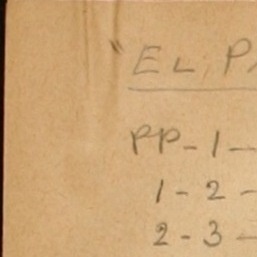 " EL PA
PP - 1 -
1 - 2 -
2 - 3 -